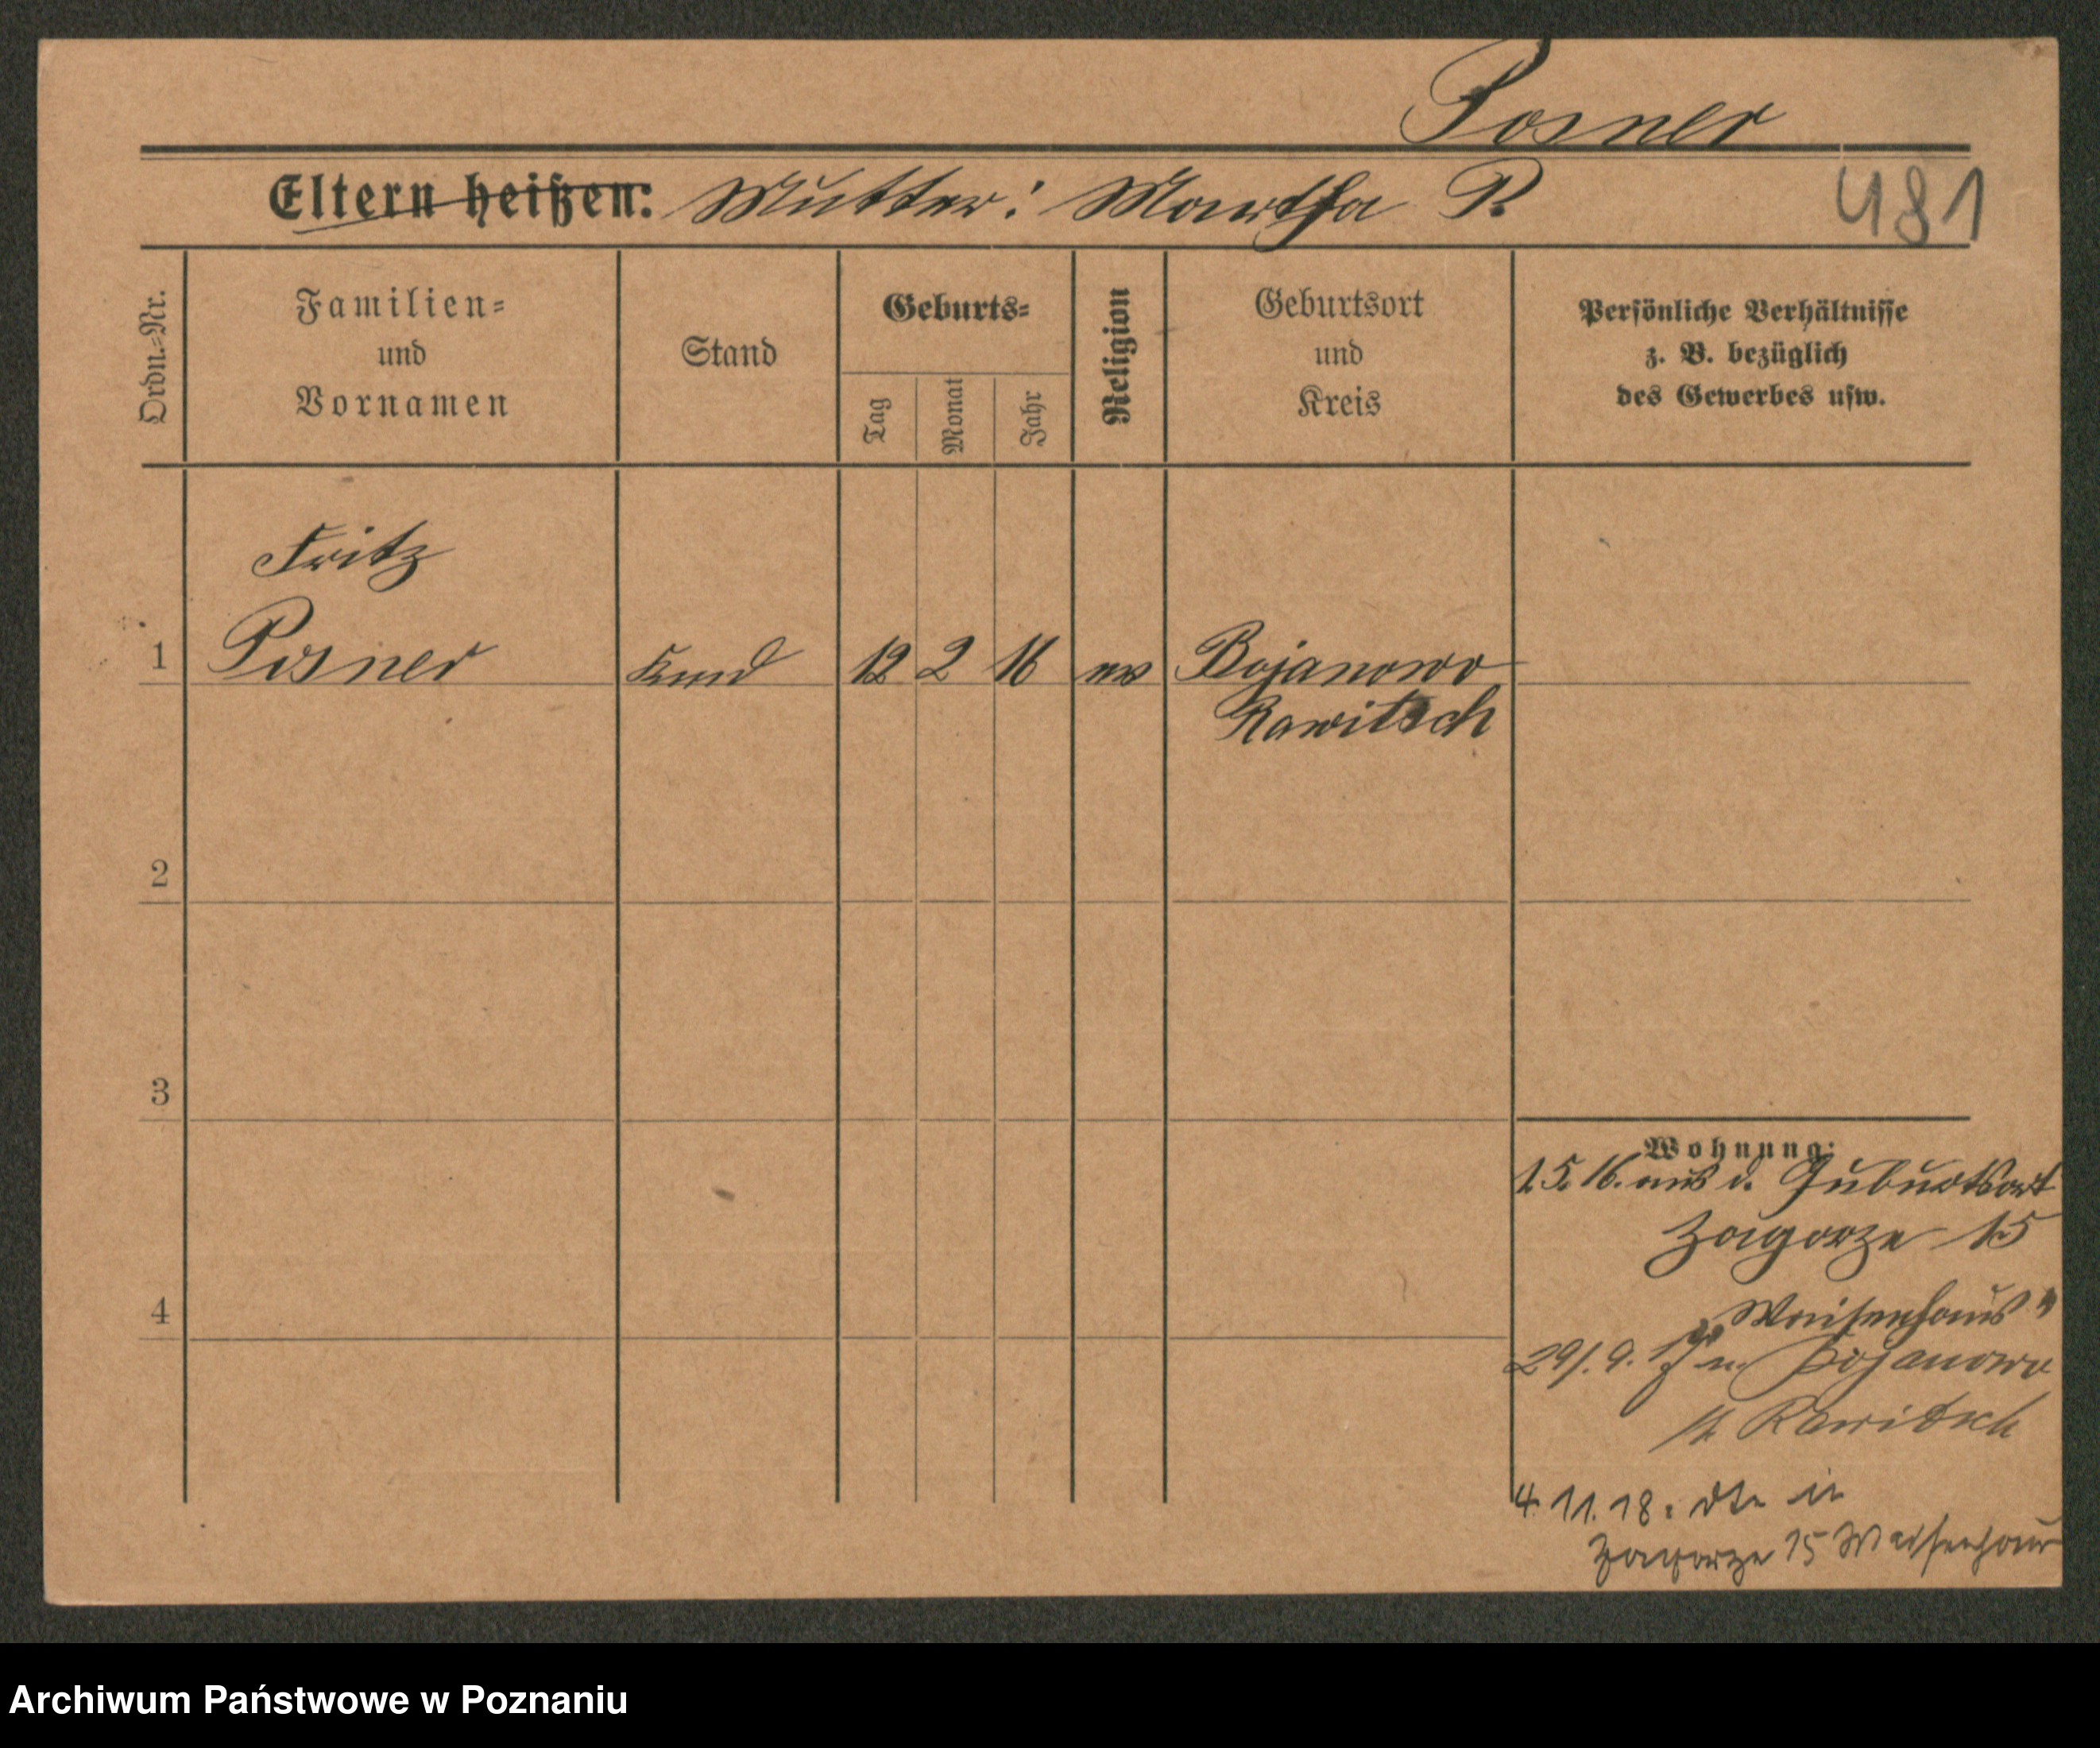 Posner
Eltern heißen: Mutter: Martha P.
481
Ordn.-Nr.
Familien-
und
Vornamen
Stand
Geburts-
Tag
Monat
Jahr
Religion
Geburtsort
und
Kreis
Persönliche Verhältnisse
z. B. bezüglich
des Gewerbes usw.
Fritz
1 Posner Kind 12 2 16 ev Bojanowo
Rawitsch
2
3
4
Wohnung:
1.5.16. aus d. Geburtsort
Zagorze 15
Waisenhaus
29/.9. n. Bojanowo
Rawitsch
4.11.18: in
Zagorze 15 Waisenhaus
Archiwum Państwowe w Poznaniu